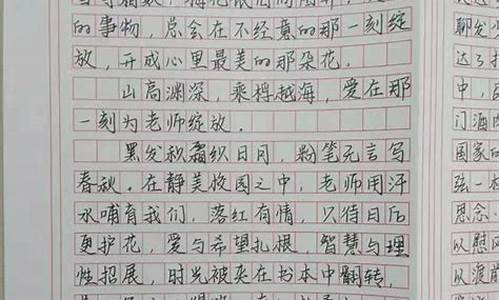 的事物，总会在不经意的那一刻绽
放，开成心里最美的那朵花。
山高渊深，乘桴越海，爱在那
一刻为老师绽放。
黑发积霜织日月，粉笔无言写
春秋。在静美校园之中，老师用汗
水哺育我们，落红有情，只待日后
更护花，爱与希望扎根，智慧与理
性招展，时光被夹在书本中翻转，
聊发少
达了
中，
门酒肉
国家的
弦一
思念
以慰风